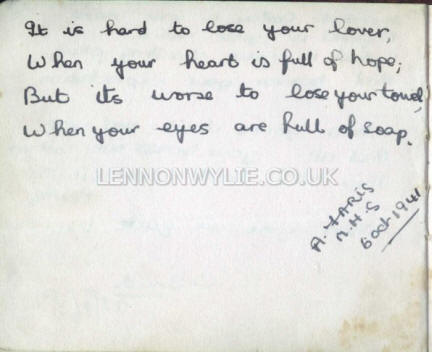 It is hard to lose your lover,
When your heart is full of hope;
But its worse to lose your towel,
When your eyes are full of soap.
LENNONWYLIE.CO.UK
A. FARIS
M.H.S
6 Oct 1941